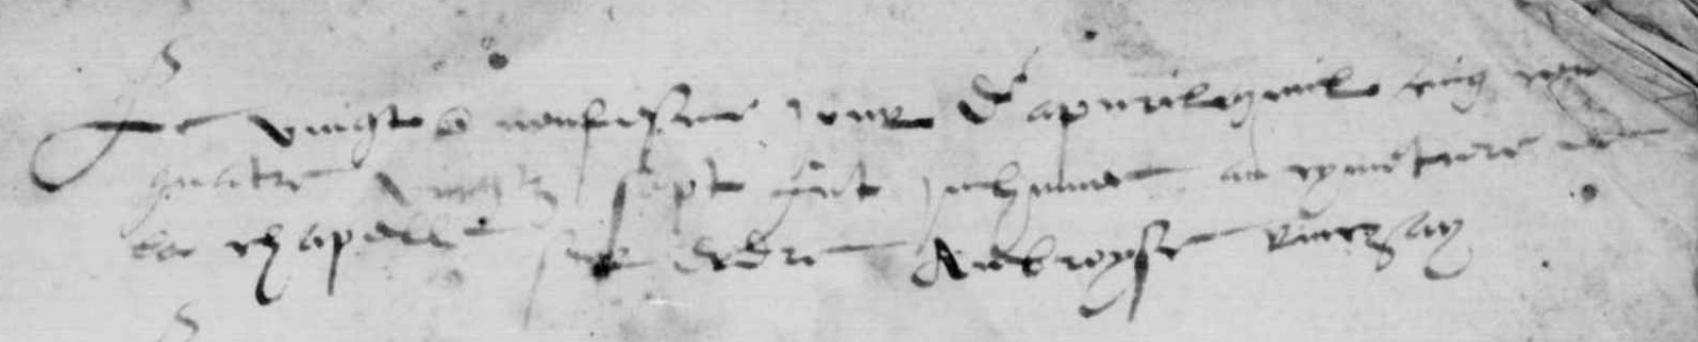 Le vingt & neufiesme jour d'apvril mil cinq cens
quatre vingtz sept fut inhumé au cymetaire de
la chapelle Ambroyse